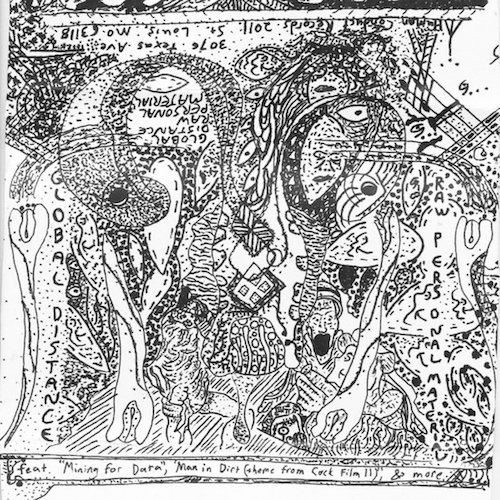 Human Conduct Records 2011
3076 Texas Ave.
St. Louis, Mo 63118
GLOBAL
DISTANCE
RAW
PERSONAL
MATERIAL
GLOBAL DISTANCE
RAW PERSONAL MATERIAL
feat. 'Mining for Data', 'Man in Dirt (theme from Cock Film II)', & more...